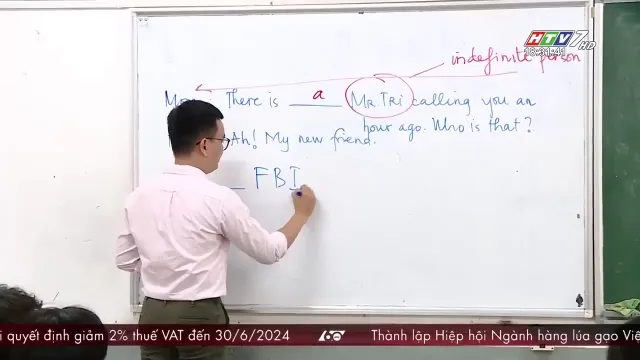 HTV7 HD
18:31:41
indefinite person
There is a Mr. Tri calling you an
hour ago. Who is that?
Ah! My new friend.
_ FBI
i quyết định giảm 2% thuế VAT đến 30/6/2024 60 Thành lập Hiệp hội Ngành hàng lúa gạo Việ